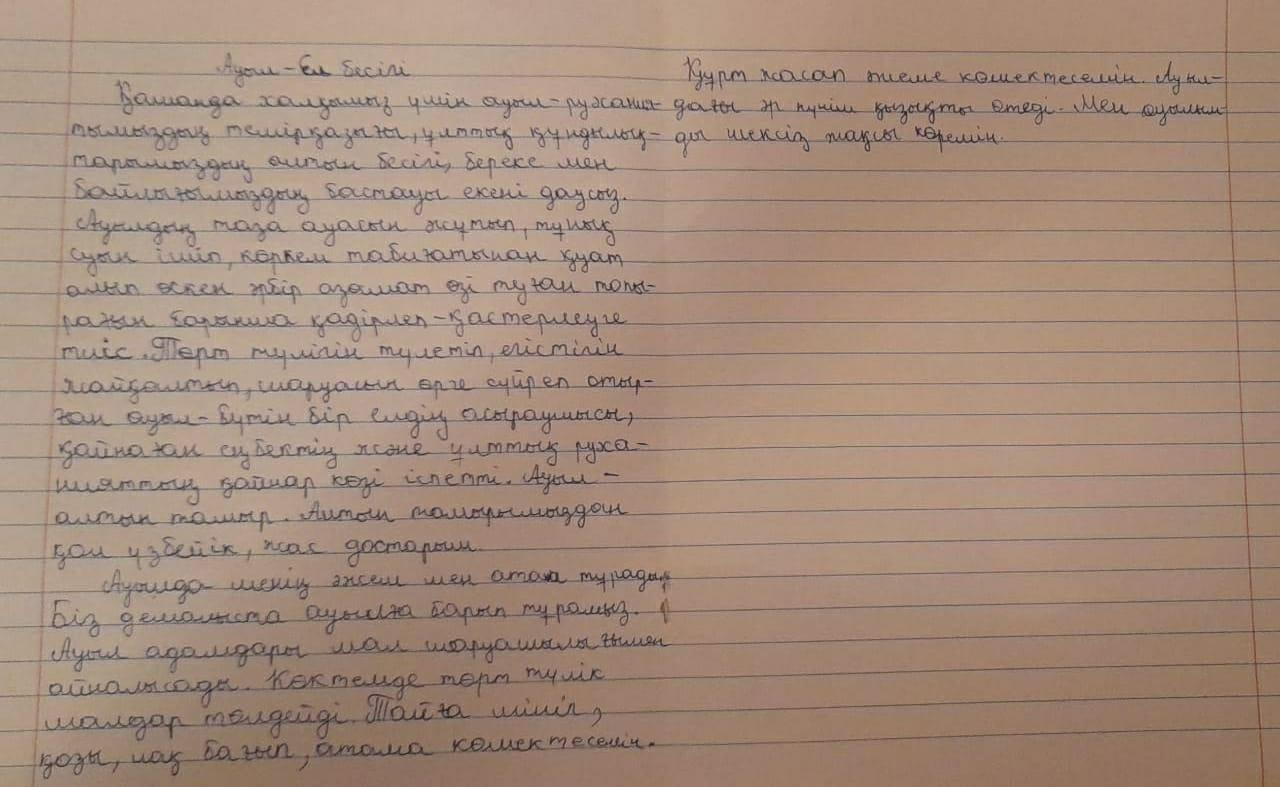 Ауыл-Ел бесігі
Қашанда халқымыз үшін ауыл-рухание-
тымыздың темірқазығы, ұлттық құндылық-
тарымыздың алтын бесігі, береке мен
байлығымыздың бастауы екені даусыз.
Ауылдың таза ауасын жұтып, тұнық
суын ішіп, көркем табиғатынан қуат
алып өскен әрбір азамат өзі туған топы-
рағын барынша қадірлеп-қастерлеуге
тиіс. Төрт түлігін түлетіп, егістігін
жайқалтып, шаруасын өрге сүйреп отыр-
ған ауыл-бүтін бір елдің асыраушысы,
қайнаған еңбектің және ұлттық руха-
нияттың қайнар көзі іспетті. Ауыл-
алтын тамыр. Алтын тамырымыздан
қол үзбейік, жас достарым.
Ауылда менің әжем мен атам тұрады.
Біз демалыста ауылға барып тұрамыз.
Ауыл адамдары мал шаруашылығымен
айналысады. Көктемде төрт түлік
малдар төлдейді. Тайға мініп,
қозы, лақ бағып, атама көмектесемін.
Құрт жасап әжеме көмектесемін. Ауыл-
дағы әр күнім қызықты өтеді. Мен ауылым-
ды шексіз жақсы көремін.